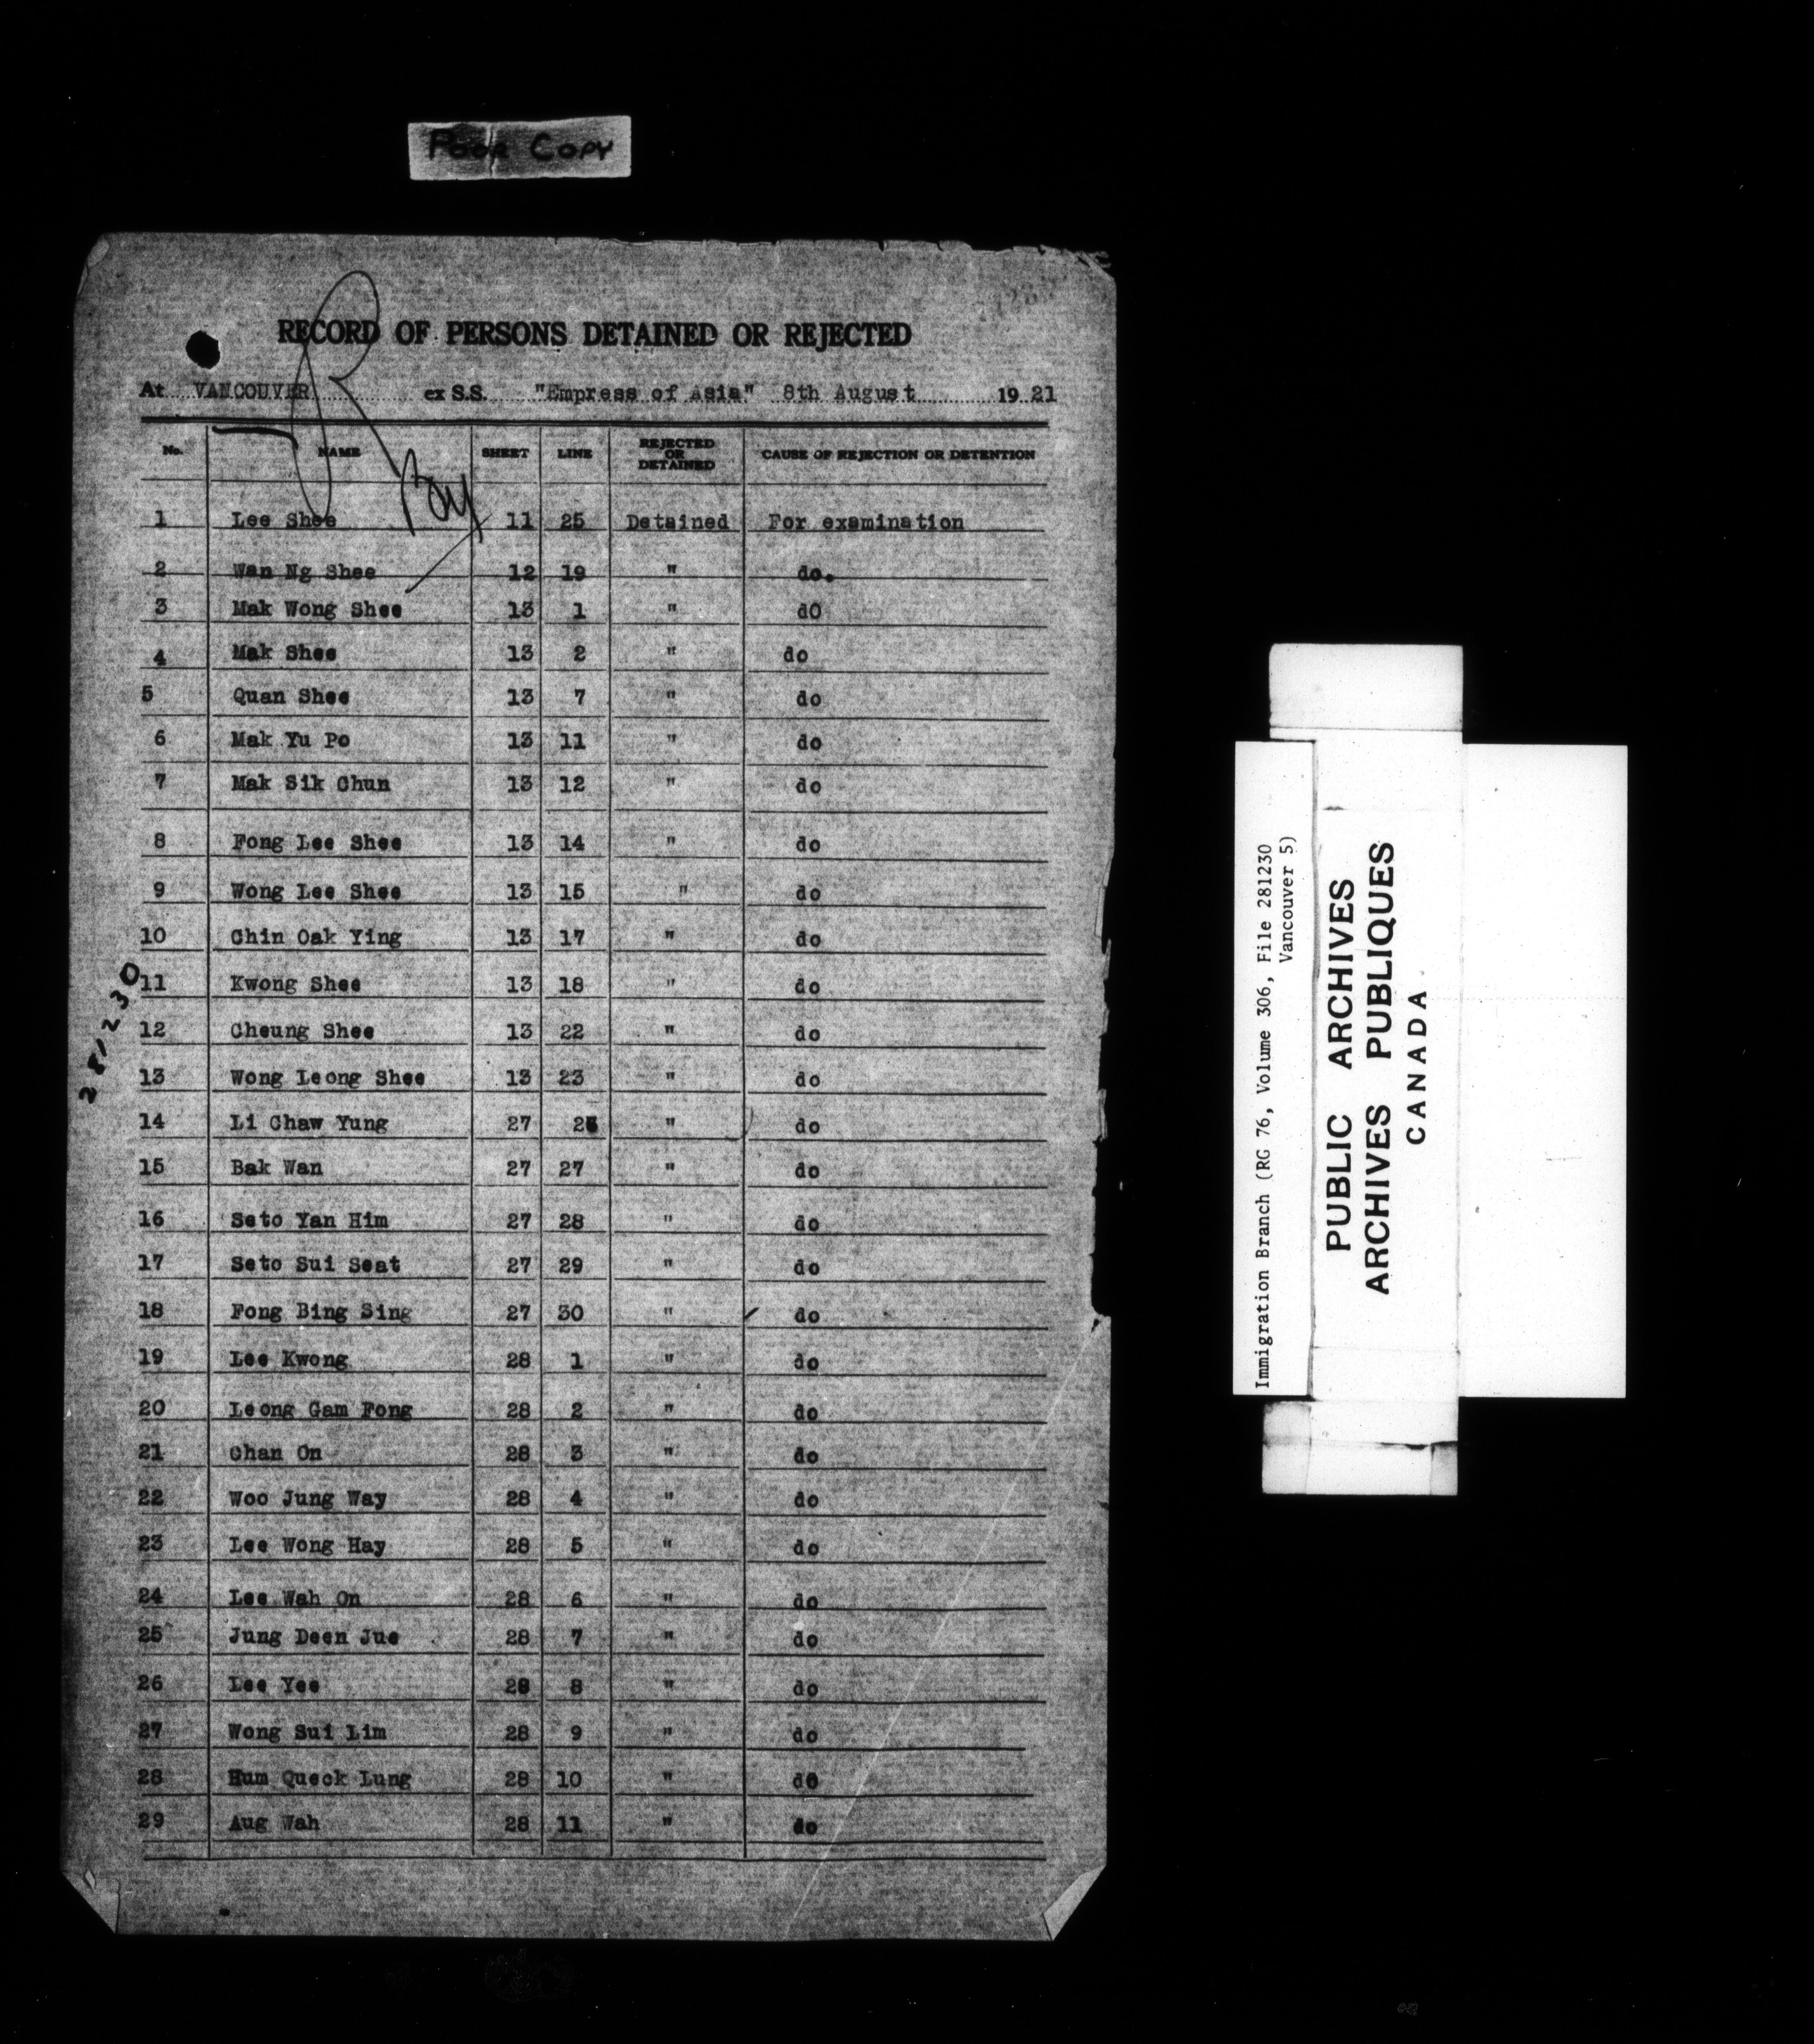 Poor Copy
RECORD OF PERSONS DETAINED OR REJECTED
At VANCOUVER ex S.S. "Empress of Asia" 8th August 1921
No. NAME SHEET LINE REJECTED OR DETAINED CAUSE OF REJECTION OR DETENTION
1 Lee Shee 11 25 Detained For examination
2 Wan Ng Shee 12 19 " do.
3 Mak Wong Shee 13 1 " dO
4 Mak Shee 13 2 " do
5 Quan Shee 13 7 " do
6 Mak Yu Po 13 11 " do
7 Mak Sik Chun 13 12 " do
8 Fong Lee Shee 13 14 " do
9 Wong Lee Shee 13 15 " do
10 Chin Oak Ying 13 17 " do
11 Kwong Shee 13 18 " do
12 Cheung Shee 13 22 " do
13 Wong Leong Shee 13 23 " do
14 Li Chaw Yung 27 " do
15 Bak Wan 27 27 " do
16 Seto Yan Him 27 28 " do
17 Seto Sui Seat 27 29 " do
18 Fong Bing Sing 27 30 " do
19 Lee Kwong 28 1 " do
20 Leong Gam Fong 28 2 " do
21 Chan On 28 3 " do
22 Woo Jung Way 28 4 " do
23 Lee Wong Hay 28 5 " do
24 Lee Wah On 28 6 " do
25 Jung Deen Jue 28 7 " do
26 Lee Yee 28 8 " do
27 Wong Sui Lim 28 9 " do
28 Hum Queck Lung 28 10 " do
29 Aug Wah 28 11 " do
281230
Immigration Branch (RG 76, Volume 306, File 281230
Vancouver 5)
PUBLIC ARCHIVES
ARCHIVES PUBLIQUES
CANADA